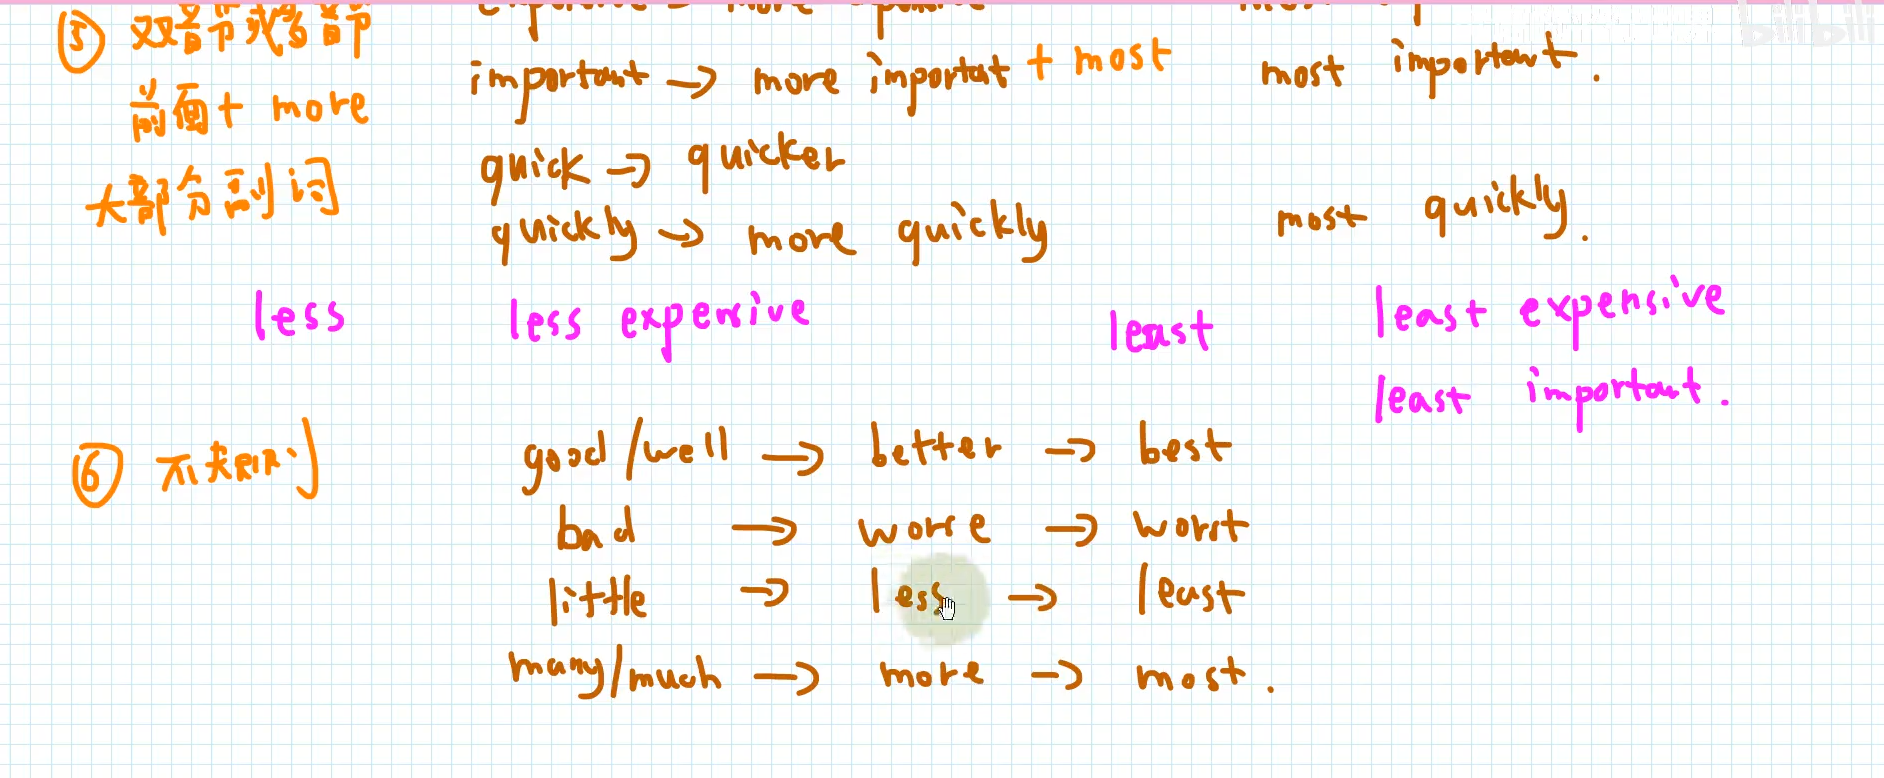 ⑤ 双音节或多音节
important → more importat + most most important.
前面+ more
quick → quicker
大部分副词
quickly → more quickly most quickly.
less less expensive least least expensive
least important.
⑥ 不规则
good/well → better → best
bad → worse → worst
little → less → least
many/much → more → most.
bilibili